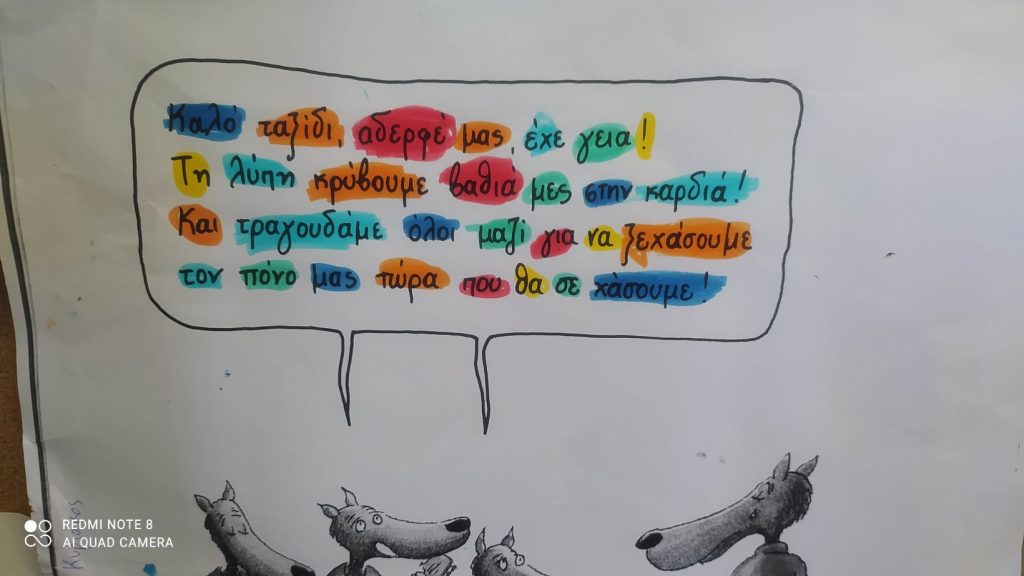 Καλό ταξίδι, αδερφέ μας, έχε γεια!
Τη λύπη κρύβουμε βαθιά μες στην καρδιά!
Και τραγουδάμε όλοι μαζί για να ξεχάσουμε
τον πόνο μας τώρα που θα σε χάσουμε!
REDMI NOTE 8
AI QUAD CAMERA